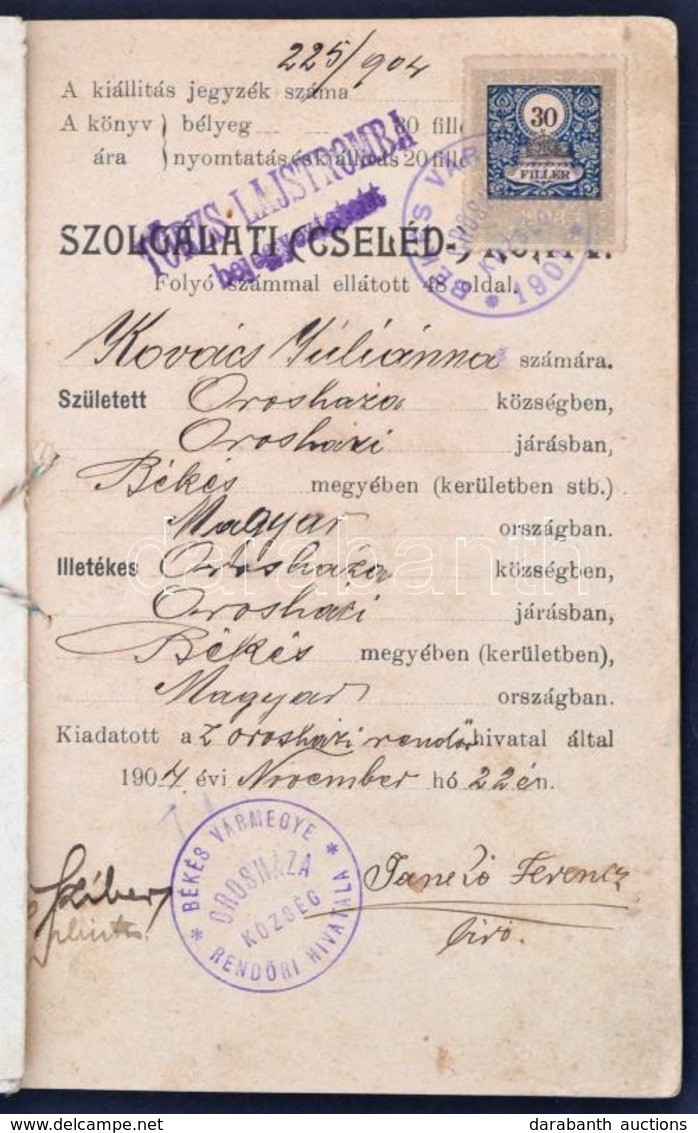 225/904
A kiállitás jegyzék száma
A könyv bélyeg 30 fillér
ára nyomtatás és kiállitás 20 fillér
30
FILLÉR
TÖRZS-LAJSTROMBA
bejegyeztetett
BÉKÉS VÁRMEGYE
KÖZSÉG
SZOLGÁLATI (CSELÉD-) KÖNYV.
Folyó számmal ellátott 48 oldal.
Kovács Juliánna számára.
Született Orosháza községben,
Orosházi járásban,
Békés megyében (kerületben stb.)
Magyar országban.
darabanth
Illetékes Orosháza községben,
Orosházi járásban,
Békés megyében (kerületben),
Magyar országban.
Kiadatott a z orosházi rendőr hivatal által
1904 évi November hó 22 én.
BÉKÉS VÁRMEGYE
OROSHÁZA
KÖZSÉG
RENDŐRI HIVATALA
Ferencz
darabanth auctions